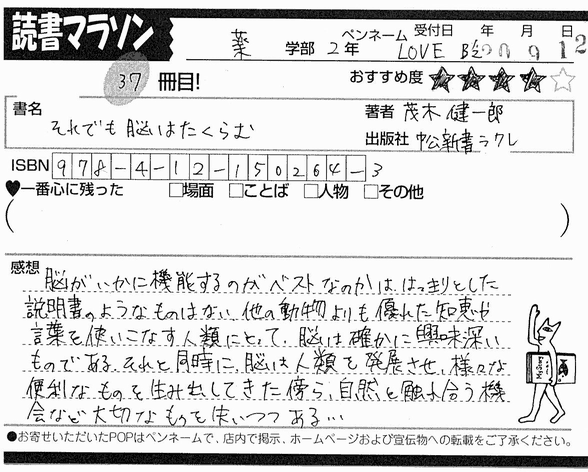 読書マラソン
薬 学部 2年 ペンネーム LOVE B'z 受付日 年 月 日 9 12
37 冊目! おすすめ度 ★★★★☆
書名 それでも脳はたくらむ
著者 茂木健一郎
出版社 中公新書ラクレ
ISBN 978-4-12-150264-3
♥一番心に残った □場面 □ことば □人物 □その他
( )
感想
脳がいかに機能するのがベストなのかは、はっきりとした
説明書のようなものはない。他の動物よりも優れた知恵や
言葉を使いこなす人類にとって、脳は確かに興味深い
ものである。それと同時に、脳は人類を発展させ、様々な
便利なものを生み出してきた傍ら、自然と触れ合う機
会など大切なものを失いつつある…
●お寄せいただいたPOPはペンネームで、店内で掲示、ホームページおよび宣伝物への転載をご了承ください。